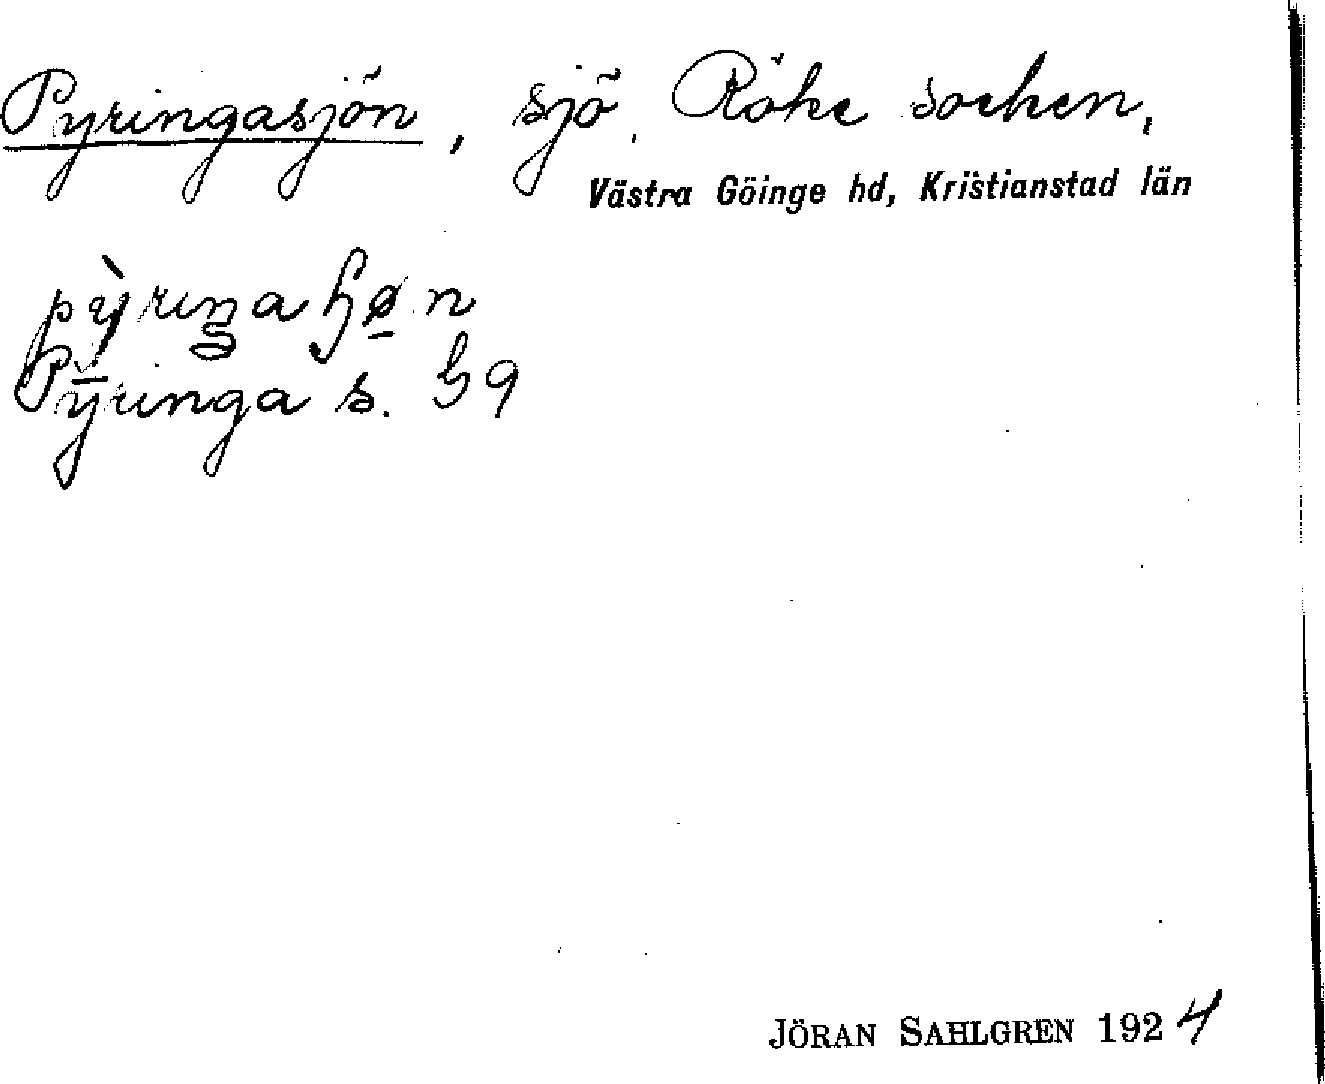 Pyringasjön, sjö, Röke socken,
Västra Göinge hd, Kristianstad län
Pyringa s. 
JÖRAN SAHLGREN 1924